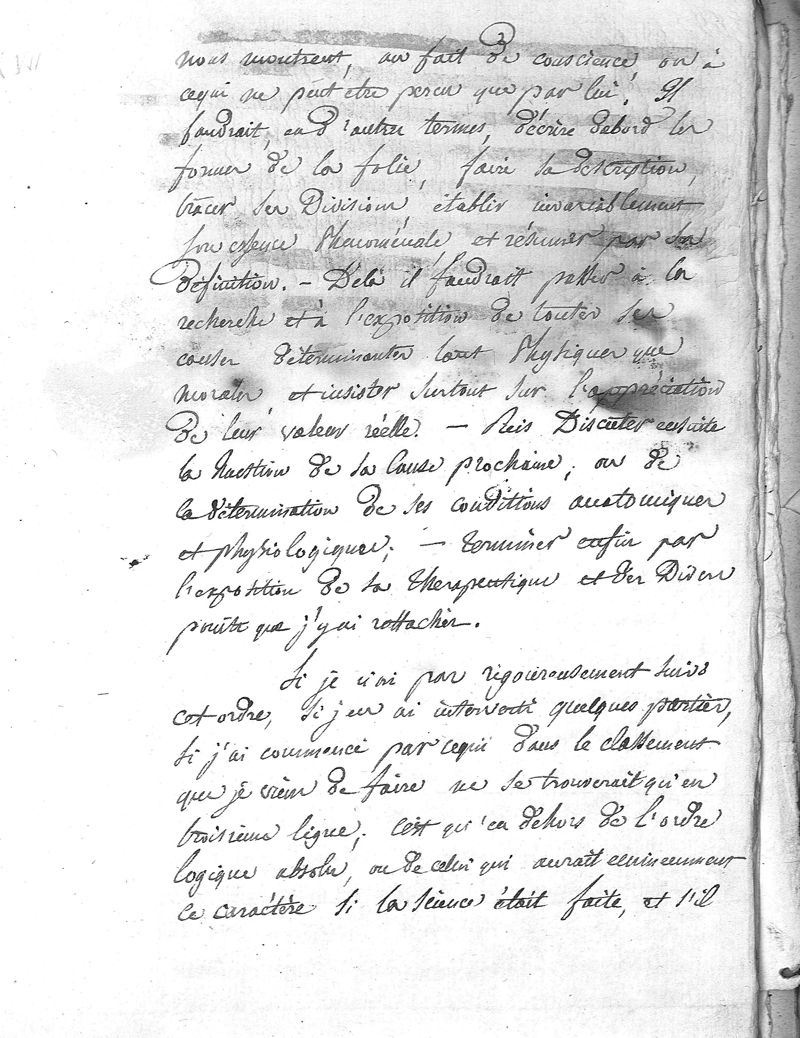 2
nous montrent, au fait de conscience ou à
cequi ne peut etre percu que par lui. Il
faudrait, en d'autres termes, décrire dabord les
formes de la folie, faire sa description,
tracer ses Divisions, établir invariablement
son essence Phénoménale et résumer par sa
définition. - Delà il faudrait passer à la
recherche et à l'exposition de toutes ses
causes déterminantes tant Physiques que
morales et insister surtout sur l'appréciation
de leur valeur réelle. — Puis Discuter ensuite
la Question de sa Cause prochaine, ou de
la détermination de ses conditions anatomiques
et physiologiques; — terminer enfin par
l'exposition de sa Thérapeutique et des Divers
points que j'y ai rattachés.
Si je n'ai pas rigoureusement suivi
cet ordre, si j'en ai interverti quelques parties,
si j'ai commencé par cequi dans le classement
que je viens de faire ne se trouverait qu'en
troisième ligne, c'est qu'en dehors de l'ordre
logique absolu, ou de celui qui aurait éminemment
ce caractère si la science était faite, et s'il